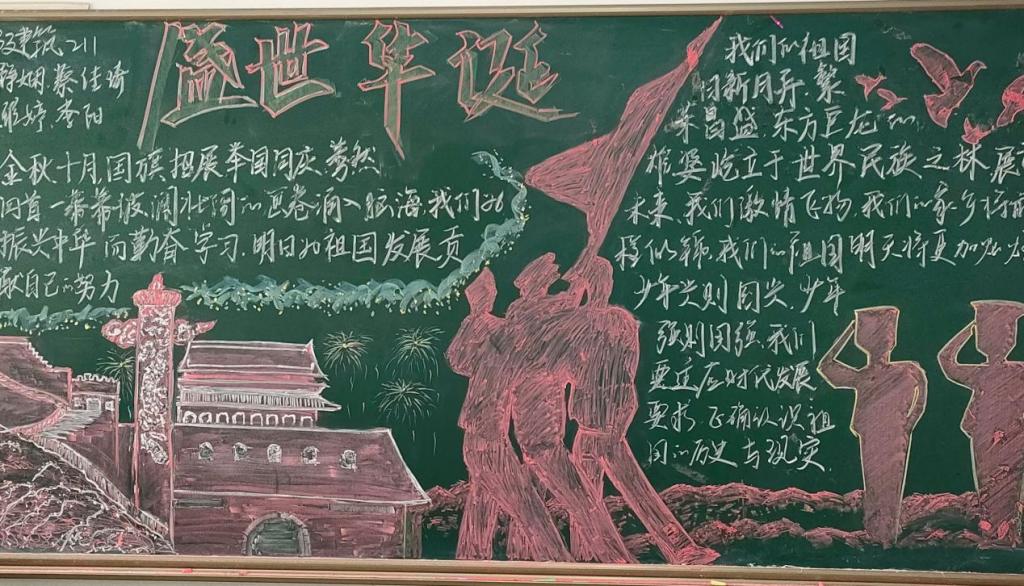 盛世华诞
建筑211
静娴.蔡佳琦
婷.李阳
金秋十月国旗招展举国同庆.蓦然
回首一幕幕波澜壮阔的画卷涌入脑海.我们为
振兴中华而勤奋学习.明日为祖国发展贡
献自己的努力
我们的祖国
日新月异.繁
荣昌盛.东方巨龙的
雄姿屹立于世界民族之林展
未来.我们激情飞扬.我们的家乡将
程似锦.我们的祖国明天将更加
少年兴则国兴.少年
强则国强.我们
要适应时代发展
要求.正确认识祖
国的历史与现实.